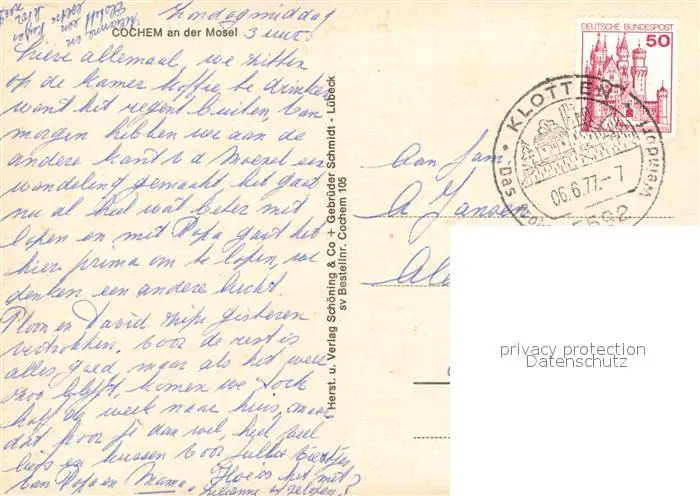 Zondagmiddag
3 uur.
COCHEM an der Mosel
Lieve allemaal, we zitten
op de kamer koffie te drinken
want het regent buiten, van
morgen hebben we aan de
andere kant v d Moezel een
wandeling gemaakt, het gaat
nu al heel wat beter met
lopen en met Papa gaat het
hier prima om te lopen, we
denken een andere lucht.
en David zijn gisteren
vertrokken. Voor de rest is
alles goed, maar als het weer
zo blijft, komen we toch
half de week naar huis, maar
dat hoor je dan wel, heel veel
liefs en kussen voor jullie
van Papa en Mama. Hoe is het met
Herst. u. Verlag Schöning & Co + Gebrüder Schmidt - Lübeck
sv Bestellnr. Cochem 105
DEUTSCHE BUNDESPOST
50
KLOTTEN
06.6.77.-7
5592
Das
Aan Fam.
A Jansen
privacy protection
Datenschutz